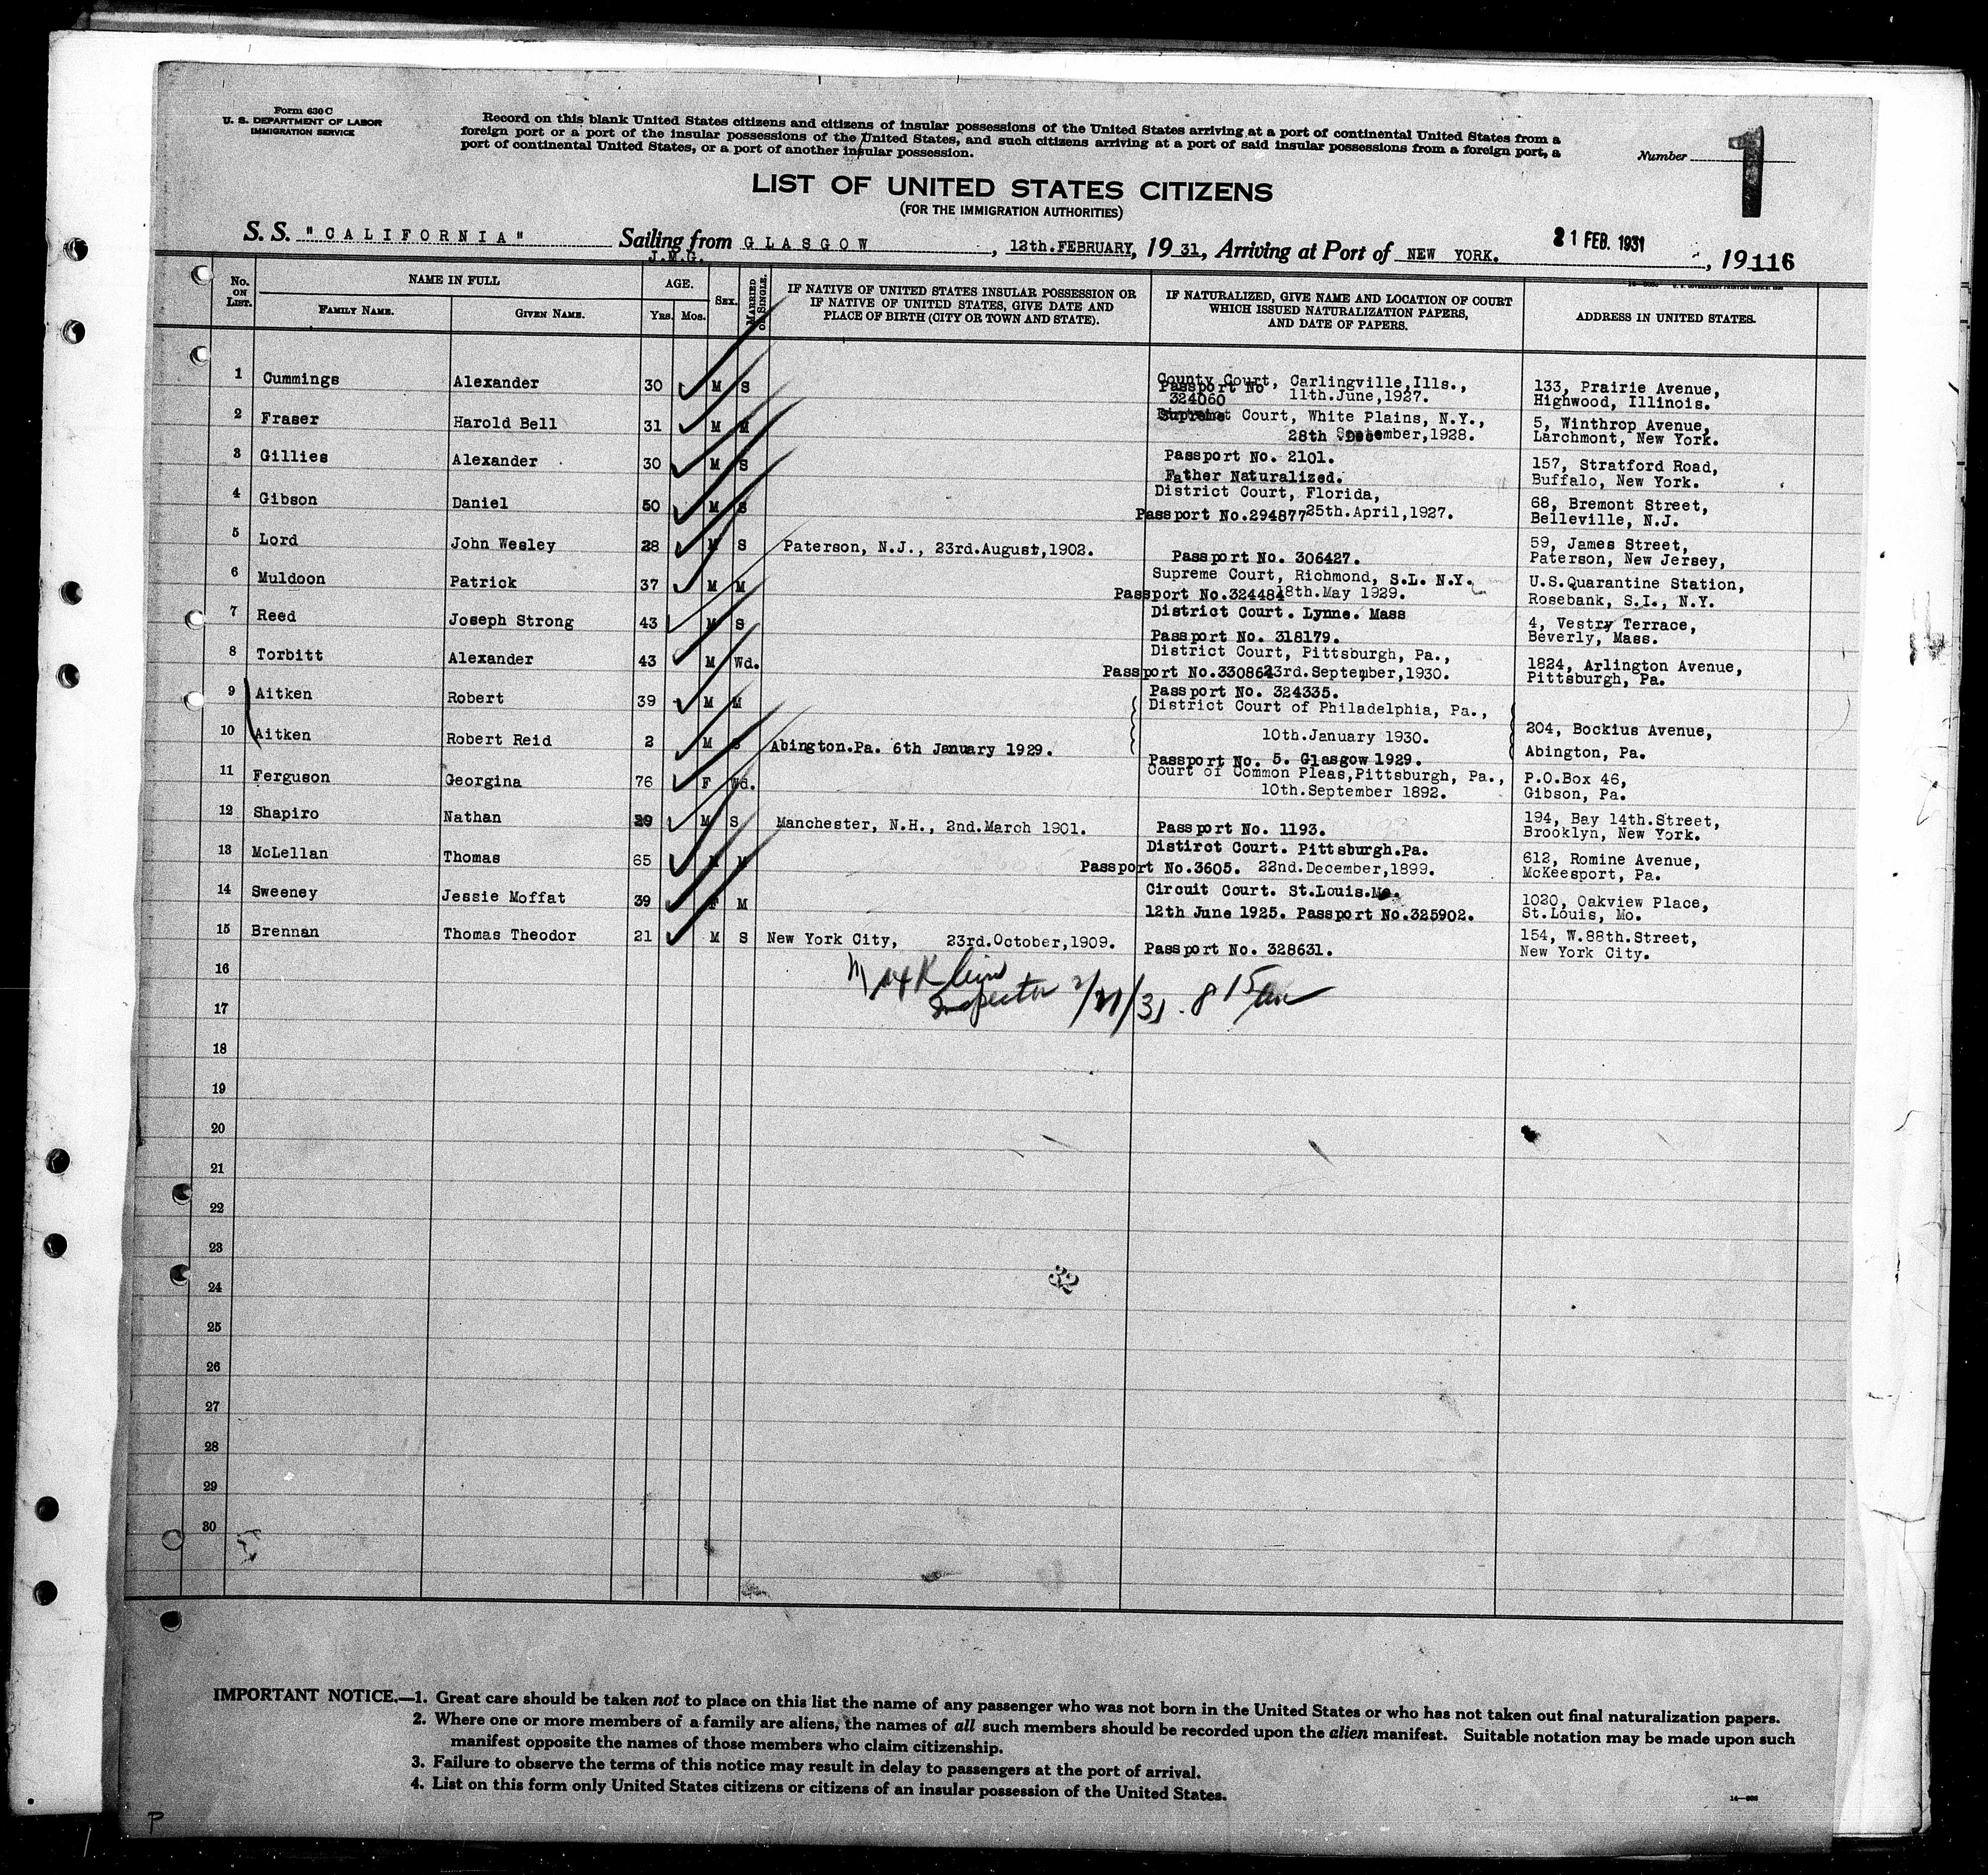 Form 630 C
U. S. DEPARTMENT OF LABOR
IMMIGRATION SERVICE
Record on this blank United States citizens and citizens of insular possessions of the United States arriving at a port of continental United States from a
foreign port or a port of the insular possessions of the United States, and such citizens arriving at a port of said insular possessions from a foreign port, a
port of continental United States, or a port of another insular possession.
Number 1
LIST OF UNITED STATES CITIZENS
(FOR THE IMMIGRATION AUTHORITIES)
S. S. "CALIFORNIA" Sailing from GLASGOW, 12th.FEBRUARY, 1931, Arriving at Port of NEW YORK. 21 FEB. 1931, 19 116
J.M.G.
No. ON LIST. NAME IN FULL AGE. Sex. MARRIED OR SINGLE. IF NATIVE OF UNITED STATES INSULAR POSSESSION OR IF NATIVE OF UNITED STATES, GIVE DATE AND PLACE OF BIRTH (CITY OR TOWN AND STATE). IF NATURALIZED, GIVE NAME AND LOCATION OF COURT WHICH ISSUED NATURALIZATION PAPERS, AND DATE OF PAPERS. ADDRESS IN UNITED STATES.
FAMILY NAME. GIVEN NAME. Yrs. Mos.
1 Cummings Alexander 30 M S County Court, Carlingville,Ills., 133, Prairie Avenue,
Passport No 324060 11th.June,1927. Highwood, Illinois.
2 Fraser Harold Bell 31 M M Supreme Court, White Plains, N.Y., 5, Winthrop Avenue,
28th September,1928. Larchmont, New York.
3 Gillies Alexander 30 M S Passport No. 2101. 157, Stratford Road,
Father Naturalized. Buffalo, New York.
4 Gibson Daniel 50 M S District Court, Florida, 68, Bremont Street,
Passport No.294877 25th.April,1927. Belleville, N.J.
5 Lord John Wesley 28 M S Paterson, N.J., 23rd.August,1902. 59, James Street,
Passport No. 306427. Paterson, New Jersey,
6 Muldoon Patrick 37 M M Supreme Court, Richmond, S.L. N.Y. U.S.Quarantine Station,
Passport No.324484 8th.May 1929. Rosebank, S.I., N.Y.
7 Reed Joseph Strong 43 M S District Court. Lynne. Mass 4, Vestry Terrace,
Passport No. 318179. Beverly, Mass.
8 Torbitt Alexander 43 M Wd. District Court, Pittsburgh, Pa., 1824, Arlington Avenue,
Passport No.330864 23rd.September,1930. Pittsburgh, Pa.
9 Aitken Robert 39 M M Passport No. 324335.
District Court of Philadelphia, Pa.,
10 Aitken Robert Reid 2 M S Abington.Pa. 6th January 1929. 10th.January 1930. 204, Bockius Avenue,
Passport No. 5. Glasgow 1929. Abington, Pa.
11 Ferguson Georgina 76 F Wd. Court of Common Pleas,Pittsburgh, Pa., P.O.Box 46,
10th.September 1892. Gibson, Pa.
12 Shapiro Nathan 29 M S Manchester, N.H., 2nd.March 1901. Passport No. 1193. 194, Bay 14th.Street,
Brooklyn, New York.
13 McLellan Thomas 65 M M Distirct Court. Pittsburgh.Pa. 612, Romine Avenue,
Passport No.3605. 22nd.December,1899. McKeesport, Pa.
14 Sweeney Jessie Moffat 39 F M Circuit Court. St.Louis.Mo. 1020, Oakview Place,
12th June 1925. Passport No.325902. St.Louis, Mo.
15 Brennan Thomas Theodor 21 M S New York City, 23rd.October,1909. Passport No. 328631. 154, W.88th.Street,
New York City.
16
Inspector 2/21/31. 8 15 am
17
18
19
20
21
22
23
24
32
25
26
27
28
29
30
IMPORTANT NOTICE.—1. Great care should be taken not to place on this list the name of any passenger who was not born in the United States or who has not taken out final naturalization papers.
2. Where one or more members of a family are aliens, the names of all such members should be recorded upon the alien manifest. Suitable notation may be made upon such
manifest opposite the names of those members who claim citizenship.
3. Failure to observe the terms of this notice may result in delay to passengers at the port of arrival.
4. List on this form only United States citizens or citizens of an insular possession of the United States.
P